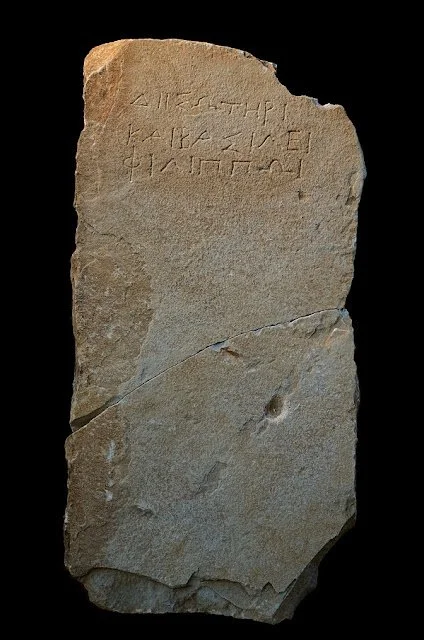 ΔΙΙΣΩΤΗΡΙ
ΚΑΙΒΑΣΙΛΕΙ
ΦΙΛΙΠΠΩΙ